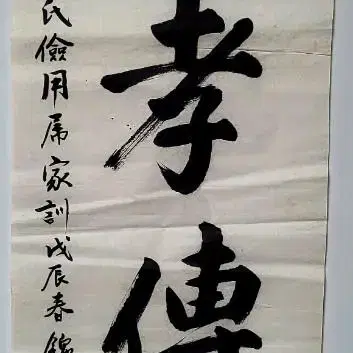 孝傳
氏儉用為家訓戊辰春錦